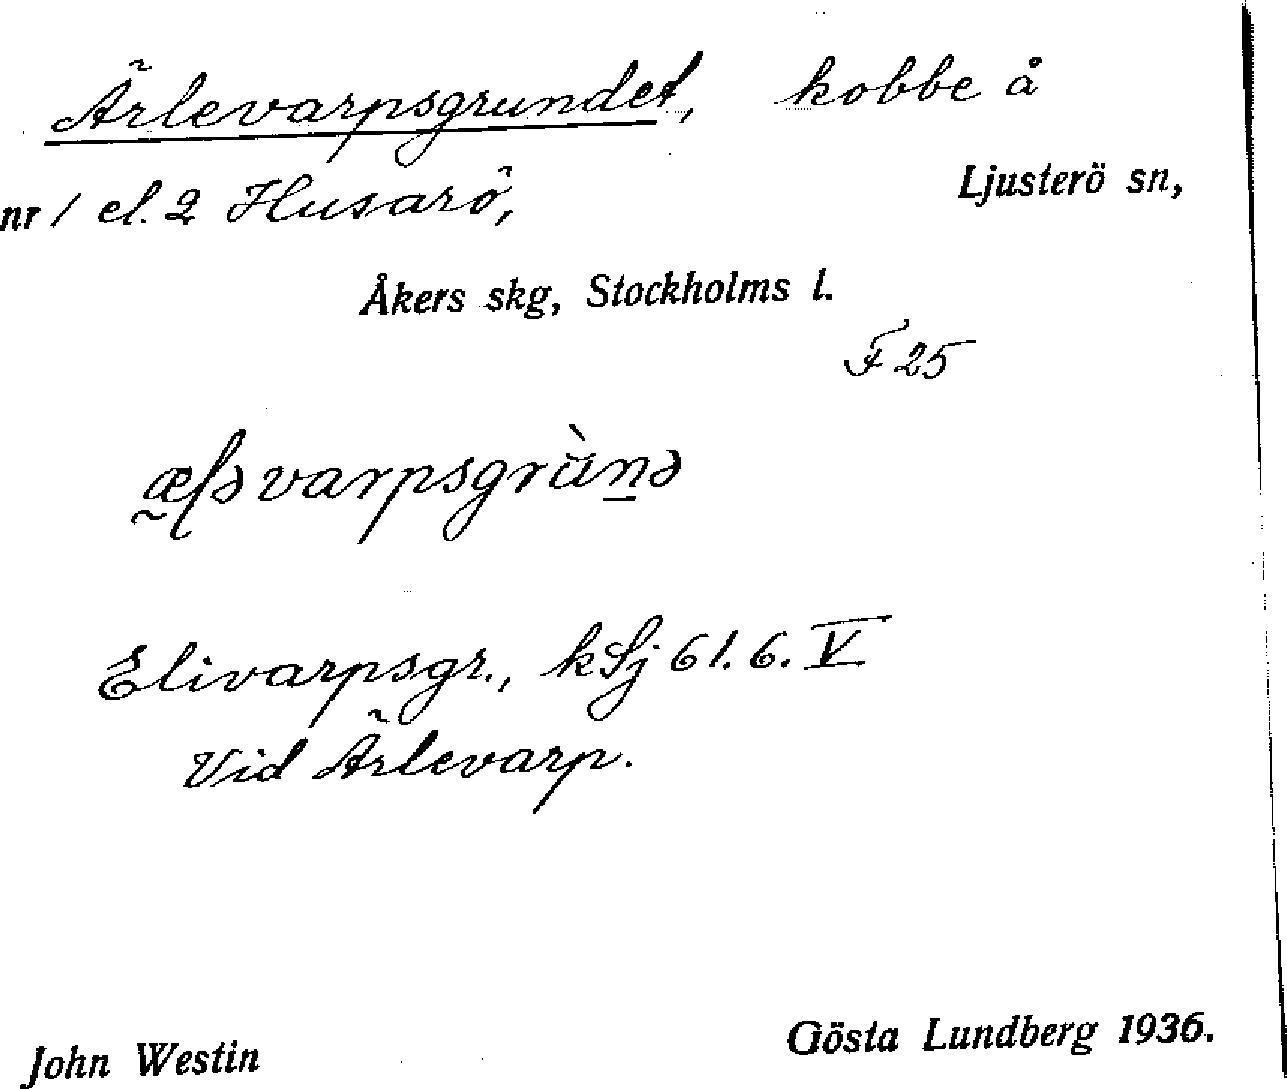 Ärlevarpsgrundet, kobbe å
nr 1 el. 2 Husarö, Ljusterö sn,
Åkers skg, Stockholms l.
F 25
æɭəvarpsgrùn̲ə
Elivarpsgr., kSj 61.6. V
Vid Ärlevarp.
John Westin Gösta Lundberg 1936.